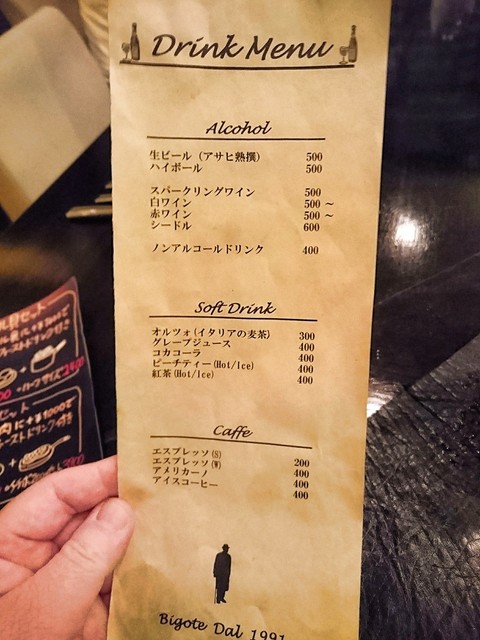 Drink Menu
Alcohol
生ビール (アサヒ熟撰) 500
ハイボール 500
スパークリングワイン 500
白ワイン 500~
赤ワイン 500~
シードル 600
ノンアルコールドリンク 400
Soft Drink
オルツォ(イタリアの麦茶) 300
グレープジュース 400
コカコーラ 400
ピーチティー(Hot/Ice) 400
紅茶(Hot/Ice) 400
Caffe
エスプレッソ(S) 200
エスプレッソ(W) 400
アメリカーノ 400
アイスコーヒー 400
Bigote Dal 1991
セット